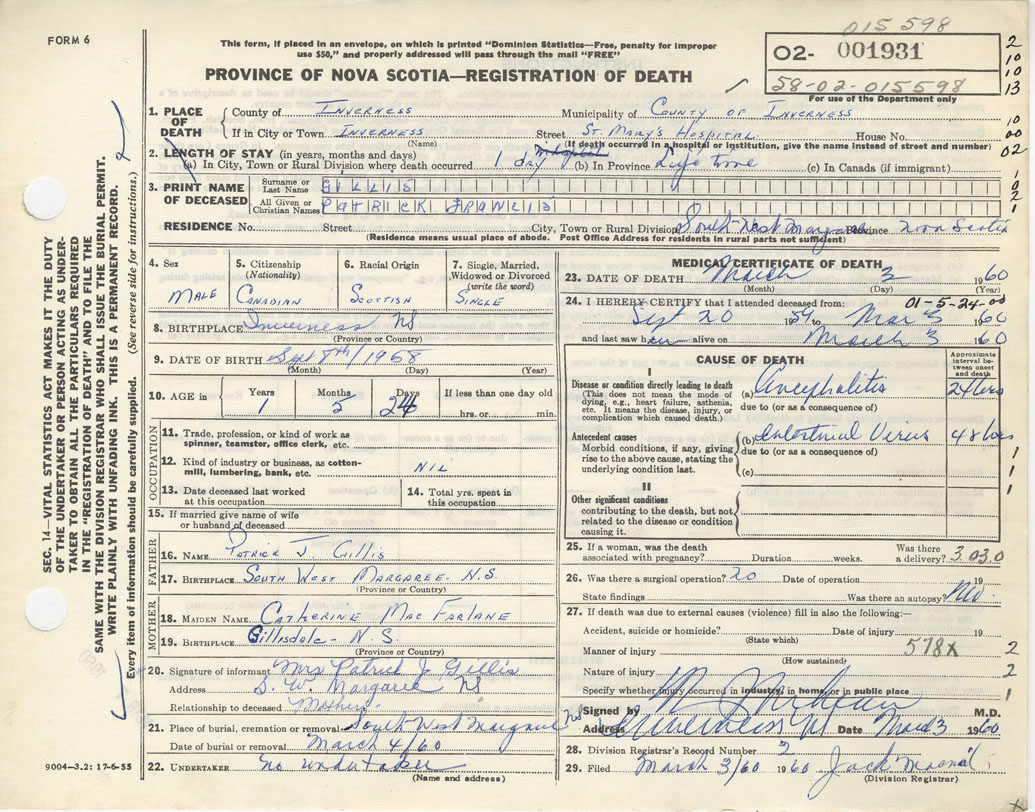 015 598
FORM 6
This form, if placed in an envelope, on which is printed "Dominion Statistics—Free, penalty for improper
use $50," and properly addressed will pass through the mail "FREE"
PROVINCE OF NOVA SCOTIA—REGISTRATION OF DEATH
02- 001931
58-02-015598
For use of the Department only
2
10
10
13
10
00
02
1. PLACE OF DEATH
County of Inverness Municipality of County of Inverness
If in City or Town Inverness Street St. Mary's Hospital House No.
(Name) (If death occurred in a hospital or institution, give the name instead of street and number)
2. LENGTH OF STAY (in years, months and days)
(a) In City, Town or Rural Division where death occurred 1 day (b) In Province Life time (c) In Canada (if immigrant)
3. PRINT NAME OF DECEASED
Surname or Last Name GILLIS
All Given or Christian Names PATRICK FRANCIS
RESIDENCE No. Street City, Town or Rural Division South West Margaree Province Nova Scotia
(Residence means usual place of abode. Post Office Address for residents in rural parts not sufficient)
4. Sex 5. Citizenship (Nationality) 6. Racial Origin 7. Single, Married, Widowed or Divorced (write the word)
Male Canadian Scottish Single
8. BIRTHPLACE Inverness NS
(Province or Country)
9. DATE OF BIRTH Sept 8th/1958
(Month) (Day) (Year)
10. AGE in Years Months Days If less than one day old
1 5 24 hrs. or min.
OCCUPATION
11. Trade, profession, or kind of work as
spinner, teamster, office clerk, etc.
12. Kind of industry or business, as cotton-
mill, lumbering, bank, etc. NIL
13. Date deceased last worked at this occupation 14. Total yrs. spent in this occupation
15. If married give name of wife
or husband of deceased
FATHER
16. NAME Patrick J Gillis
17. BIRTHPLACE South West Margaree. N.S.
(Province or Country)
MOTHER
18. MAIDEN NAME Catherine MacFarlane
19. BIRTHPLACE Gillisdale - N.S.
(Province or Country)
20. Signature of informant Mrs Patrick J Gillis
Address S. W. Margaree NS
Relationship to deceased Mother
21. Place of burial, cremation or removal South West Margaree NS
Date of burial or removal March 4/60
22. UNDERTAKER no undertaker
(Name and address)
MEDICAL CERTIFICATE OF DEATH
23. DATE OF DEATH March 3 1960
(Month) (Day) (Year)
24. I HEREBY CERTIFY that I attended deceased from: 01-5-24-00
Sept 20 1959 to Mar 3 1960
and last saw him alive on March 3 1960
CAUSE OF DEATH
Approximate interval between onset and death
I
Disease or condition directly leading to death (a) Encephalitis 24 hrs
(This does not mean the mode of dying, e.g., heart failure, asthenia, etc. It means the disease, injury, or complication which caused death.)
due to (or as a consequence of)
Antecedent causes (b) Intestinal Virus 48 hrs
Morbid conditions, if any, giving rise to the above cause, stating the underlying condition last.
due to (or as a consequence of)
(c)
II
Other significant conditions
contributing to the death, but not related to the disease or condition causing it.
25. If a woman, was the death associated with pregnancy? Duration weeks. Was there a delivery? 3.03.0
26. Was there a surgical operation? no Date of operation 19
State findings Was there an autopsy? No
27. If death was due to external causes (violence) fill in also the following:—
Accident, suicide or homicide? Date of injury 19
(State which)
Manner of injury 578X
(How sustained)
Nature of injury
Specify whether injury occurred in industry, in home, or in public place
Signed by M.D.
Address Inverness NS Date Mar 3 1960
28. Division Registrar's Record Number 2
29. Filed March 3/60 1960 Jack
(Division Registrar)
SEC. 14—VITAL STATISTICS ACT MAKES IT THE DUTY
OF THE UNDERTAKER OR PERSON ACTING AS UNDER-
TAKER TO OBTAIN ALL THE PARTICULARS REQUIRED
IN THE "REGISTRATION OF DEATH" AND TO FILE THE
SAME WITH THE DIVISION REGISTRAR WHO SHALL ISSUE THE BURIAL PERMIT.
WRITE PLAINLY WITH UNFADING INK. THIS IS A PERMANENT RECORD.
Every item of information should be carefully supplied. (See reverse side for instructions.)
9004-3.2: 17-6-55